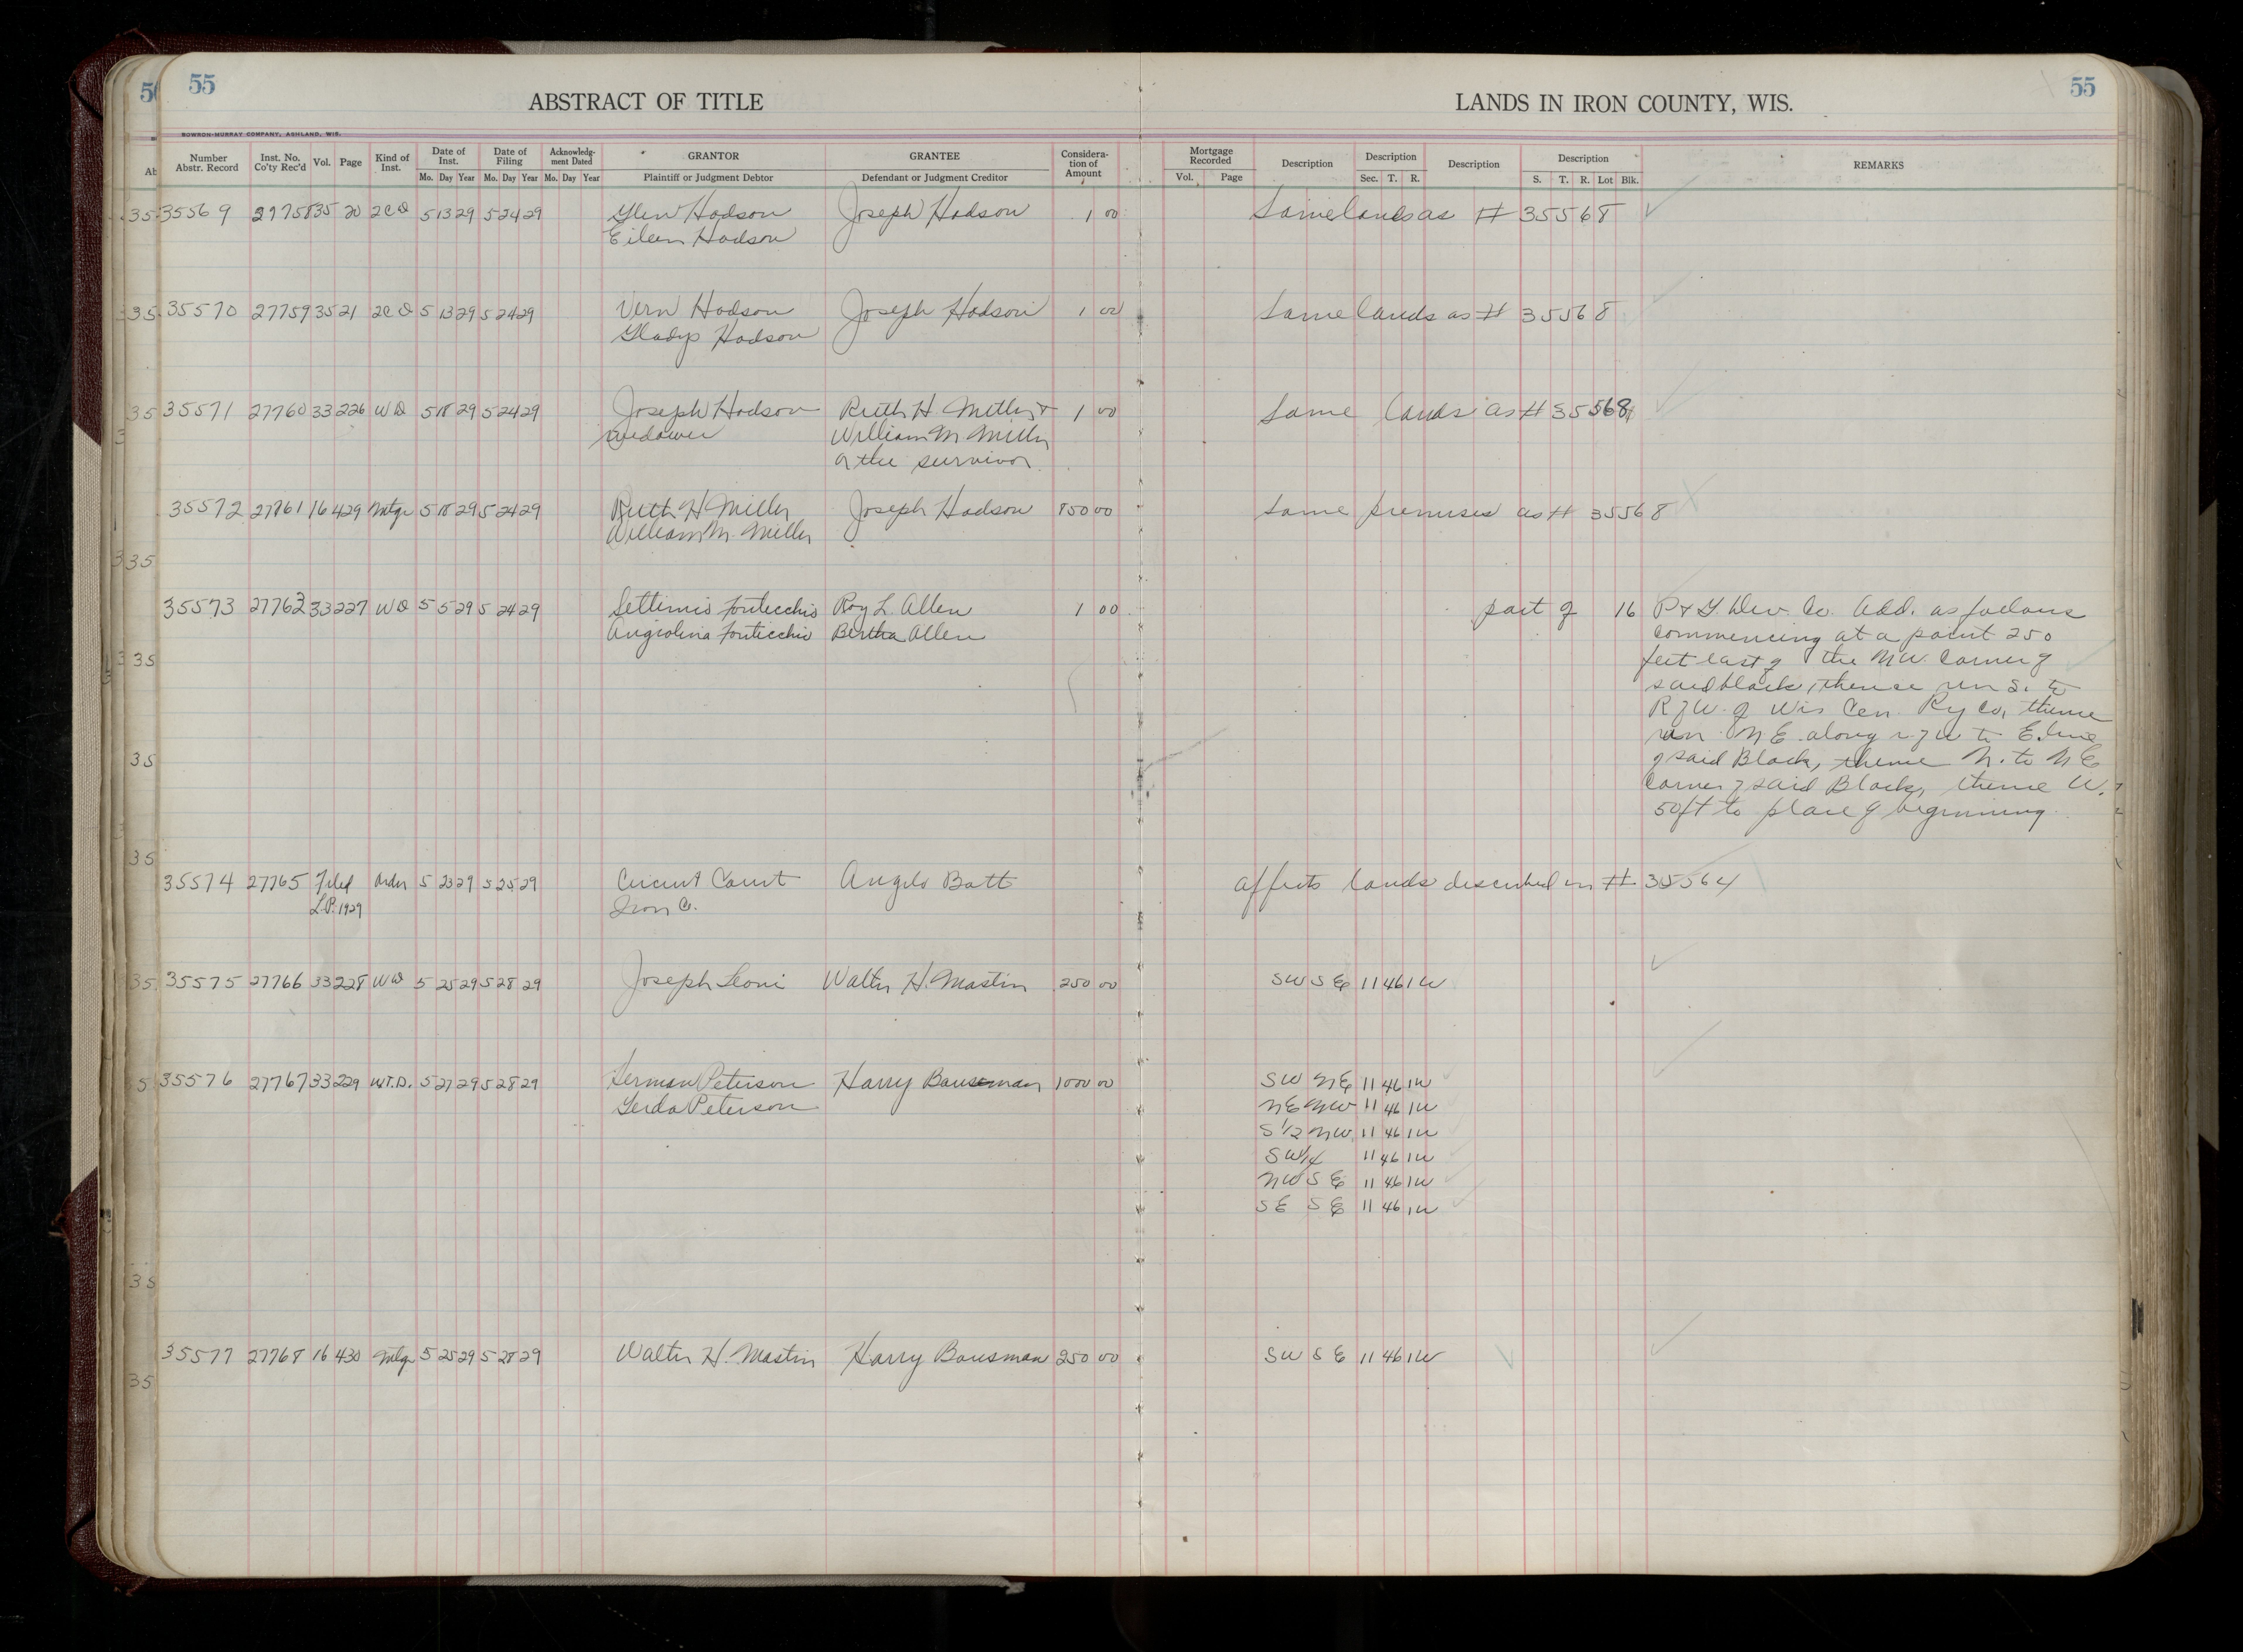 55
55
ABSTRACT OF TITLE
LANDS IN IRON COUNTY, WIS.
BOWRON-MURRAY COMPANY, ASHLAND, WIS.
Number Abstr. Record
Inst. No. Co'ty Rec'd
Vol.
Page
Kind of Inst.
Date of Inst.
Mo. Day Year
Date of Filing
Mo. Day Year
Acknowledgment Dated
Mo. Day Year
GRANTOR
Plaintiff or Judgment Debtor
GRANTEE
Defendant or Judgment Creditor
Consideration of Amount
Mortgage Recorded
Vol. Page
Description
Description
Sec. T. R.
Description
Description
S. T. R. Lot Blk.
REMARKS
35569 27758 35 20 QCD 5 13 29 5 24 29 Glen Hodson Joseph Hodson 1 00 Same lands as # 35568
Eileen Hodson
35570 27759 35 21 QCD 5 13 29 5 24 29 Vern Hodson Joseph Hodson 1 00 Same lands as # 35568
Gladys Hodson
35571 27760 33 226 WD 5 18 29 5 24 29 Joseph Hodson Ruth H. Miller & 1 00 Same lands as # 35568
widower William M Miller
or the survivor
35572 27761 16 429 Mtge 5 18 29 5 24 29 Ruth H Miller Joseph Hodson 850 00 Same premises as # 35568
William M. Miller
35573 27762 33 227 WD 5 5 29 5 24 29 Settimio Fonticchio Roy L. Allen 1 00 part of 16 P & G. Dev. Co. Add. as follows
Angiolina Fonticchio Bertha Allen commencing at a point 250
feet east of the NW. Corner of
said block, thence run S. to
R of W. of Wis Cen Ry Co, thence
run N E along r of w to E. line
of said Block, thence N. to N E
Corner of said Block, thence W.
50 ft to place of beginning
35574 27765 Filed Order 5 23 29 5 25 29 Circuit Court Angelo Batt affects lands described in # 35564
L.P. 1929 Iron Co.
35575 27766 33 228 WD 5 25 29 5 28 29 Joseph Leoni Walter H. Mastin 250 00 SW SE 11 46 1W
35576 27767 33 229 WT.D. 5 27 29 5 28 29 Herman Peterson Harry Bausman 1000 00 SW NE 11 46 1W
Gerda Peterson NE NW 11 46 1W
S 1/2 NW 11 46 1W
SW1/4 11 46 1W
NW SE 11 46 1W
SE SE 11 46 1W
35577 27768 16 430 Mtge 5 25 29 5 28 29 Walter H. Mastin Harry Bausman 250 00 SW SE 11 46 1W